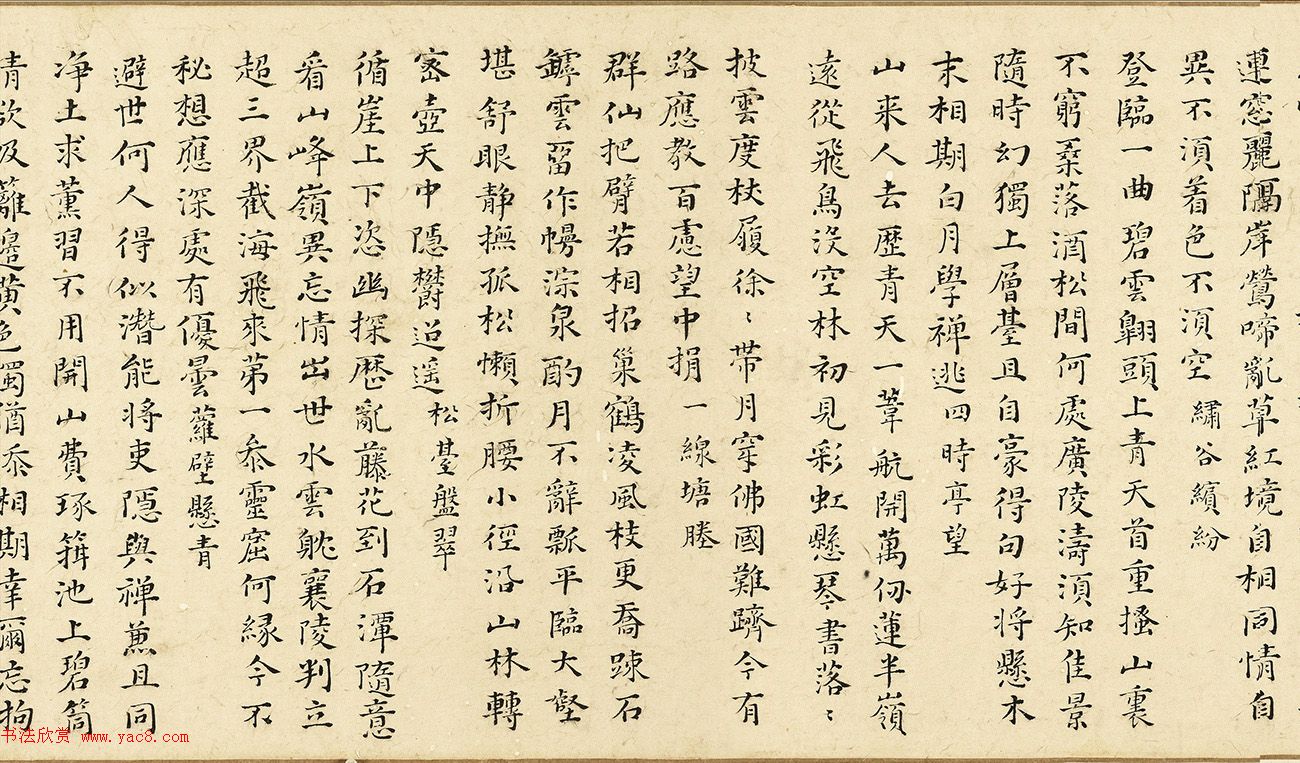 連窓麗隔岸鶯啼亂草紅境自相同情自
異不湏着色不湏空 繡谷繽紛
登臨一曲碧雲翱頭上青天首重搔山裏
不窮桑落酒松間何處廣陵濤湏知佳景
隨時幻獨上層臺且自豪得句好將懸木
末相期白月學禅逃 四時亭望
山来人去歴青天一葦航開萬仞蓮半嶺
遠從飛鳥没空林初見彩虹懸琴書落〻
披雲度杖履徐〻帯月穿佛國難躋今有
路應教百慮望中捐 一線塘塍
群仙把臂若相招巢鶴凌風枝更喬踈石
罅雲留作幔深泉酌月不辭瓢平臨大壑
堪舒眼静撫孤松懶折腰小徑沿山林轉
宻壺天中隱欝迢遥 松臺盤翠
循崖上下恣幽探歴亂藤花到石潭隨意
看山峰嶺異忘情出世水雲躭襄陵判立
超三界截海飛來苐一叅靈窟何縁今不
秘想應深處有優曇 蘿壁懸青
避世何人得似潛能將吏隱與禅兼且同
净土求薰習不用開山費琢
池上碧筒
情欲及籬邊黄色蜀酋叅相期幸爾忘拘
书法欣赏 www.yac8.com